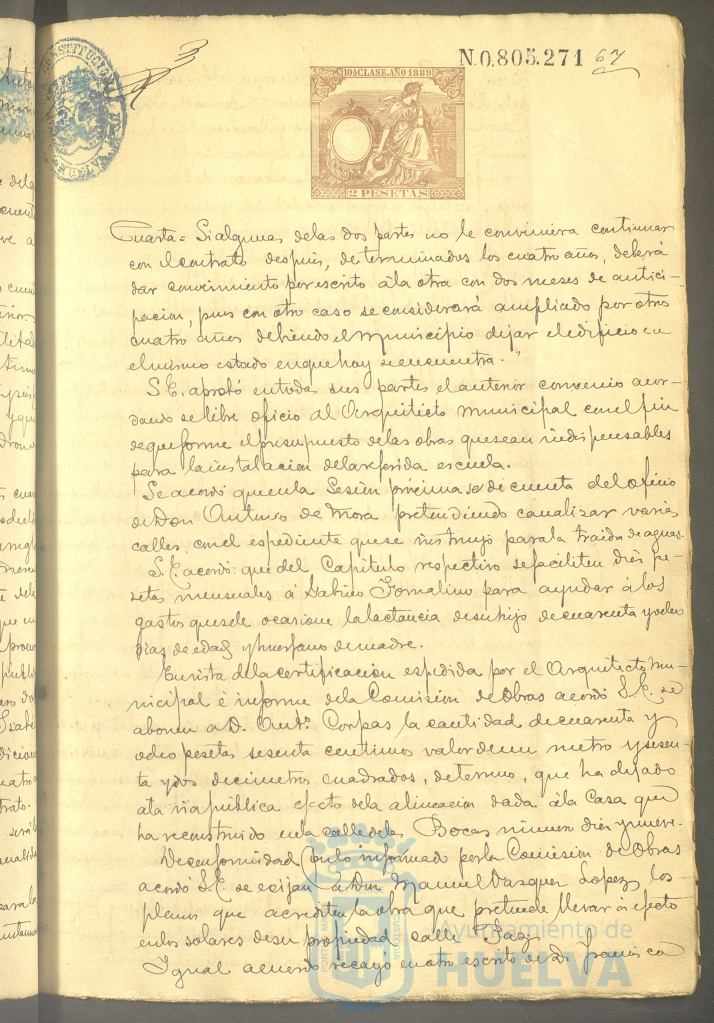 3
N.0.805.271 67
10ª CLASE. AÑO 1889
2 PESETAS
Cuarta = Si alguna, de las dos partes no le conviniera continuar
con el contrato despues, de terminados los cuatro años, deberá
dar conocimiento por escrito á la otra con dos meses de antici-
pacion, pues con otro caso se considerará ampliado por otros
cuatro años debiendo el Municipio dejar el edificio en
el mismo estado en que hoy se encuentra."
S.E. aprobó en todas sus partes el anterior convenio acor-
dando se libre oficio al Arquitecto Municipal con el fin
de que forme el presupuesto de las obras que sean indispensables
para la instalacion de la referida escuela.
Se acordó que en la Sesion próxima se de cuenta del oficio
de Don Arturo de Mora pretendiendo canalizar varias
calles, con el espediente que se instruyó para la traida de aguas.
S.E. acordó: que del Capitulo respectivo se faciliten diez pe-
setas mensuales á Gabino Fornalino para ayudar á los
gastos que le ocasione la lactancia de su hijo de cuarenta y ocho
dias de edad y huerfano de madre.
En vista de la certificacion espedida por el Arquitecto Mu-
nicipal é informe de la Comision de Obras acordó S.E. se
abonen a D. Antº. Corpas la cantidad de cuarenta y
ocho pesetas sesenta centimos valor de un metro y sesen-
ta y dos decimetros cuadrados, de terreno, que ha dejado
a la via pública efecto de la alineacion dada á la Casa que
ha reconstruido en la calle de las Bocas número diez y nueve.
De conformidad con lo informado por la Comision de Obras
acordó S.E. se exijan á Don Manuel Vazquez Lopez los
planos que acrediten la obra que pretende llevar á efecto
en los solares de su propiedad calle Paz.
Igual acuerdo recayo en otro escrito de D. Francisco
Ayuntamiento de
HUELVA